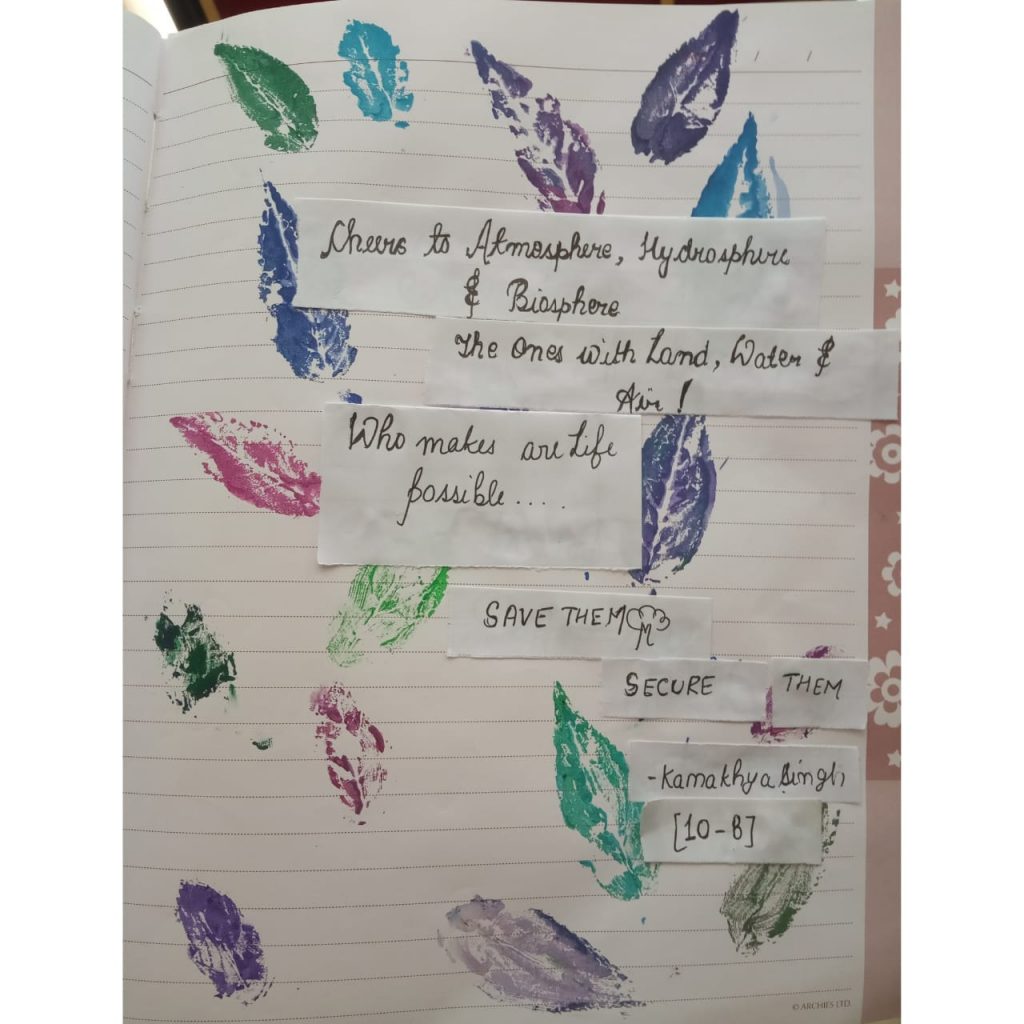 Cheers to Atmosphere, Hydrosphere
& Biosphere
The Ones with Land, Water &
Air!
Who makes are Life
possible....
SAVE THEM
SECURE THEM
-Kamakhya Singh
[10-B]
© ARCHIES LTD.